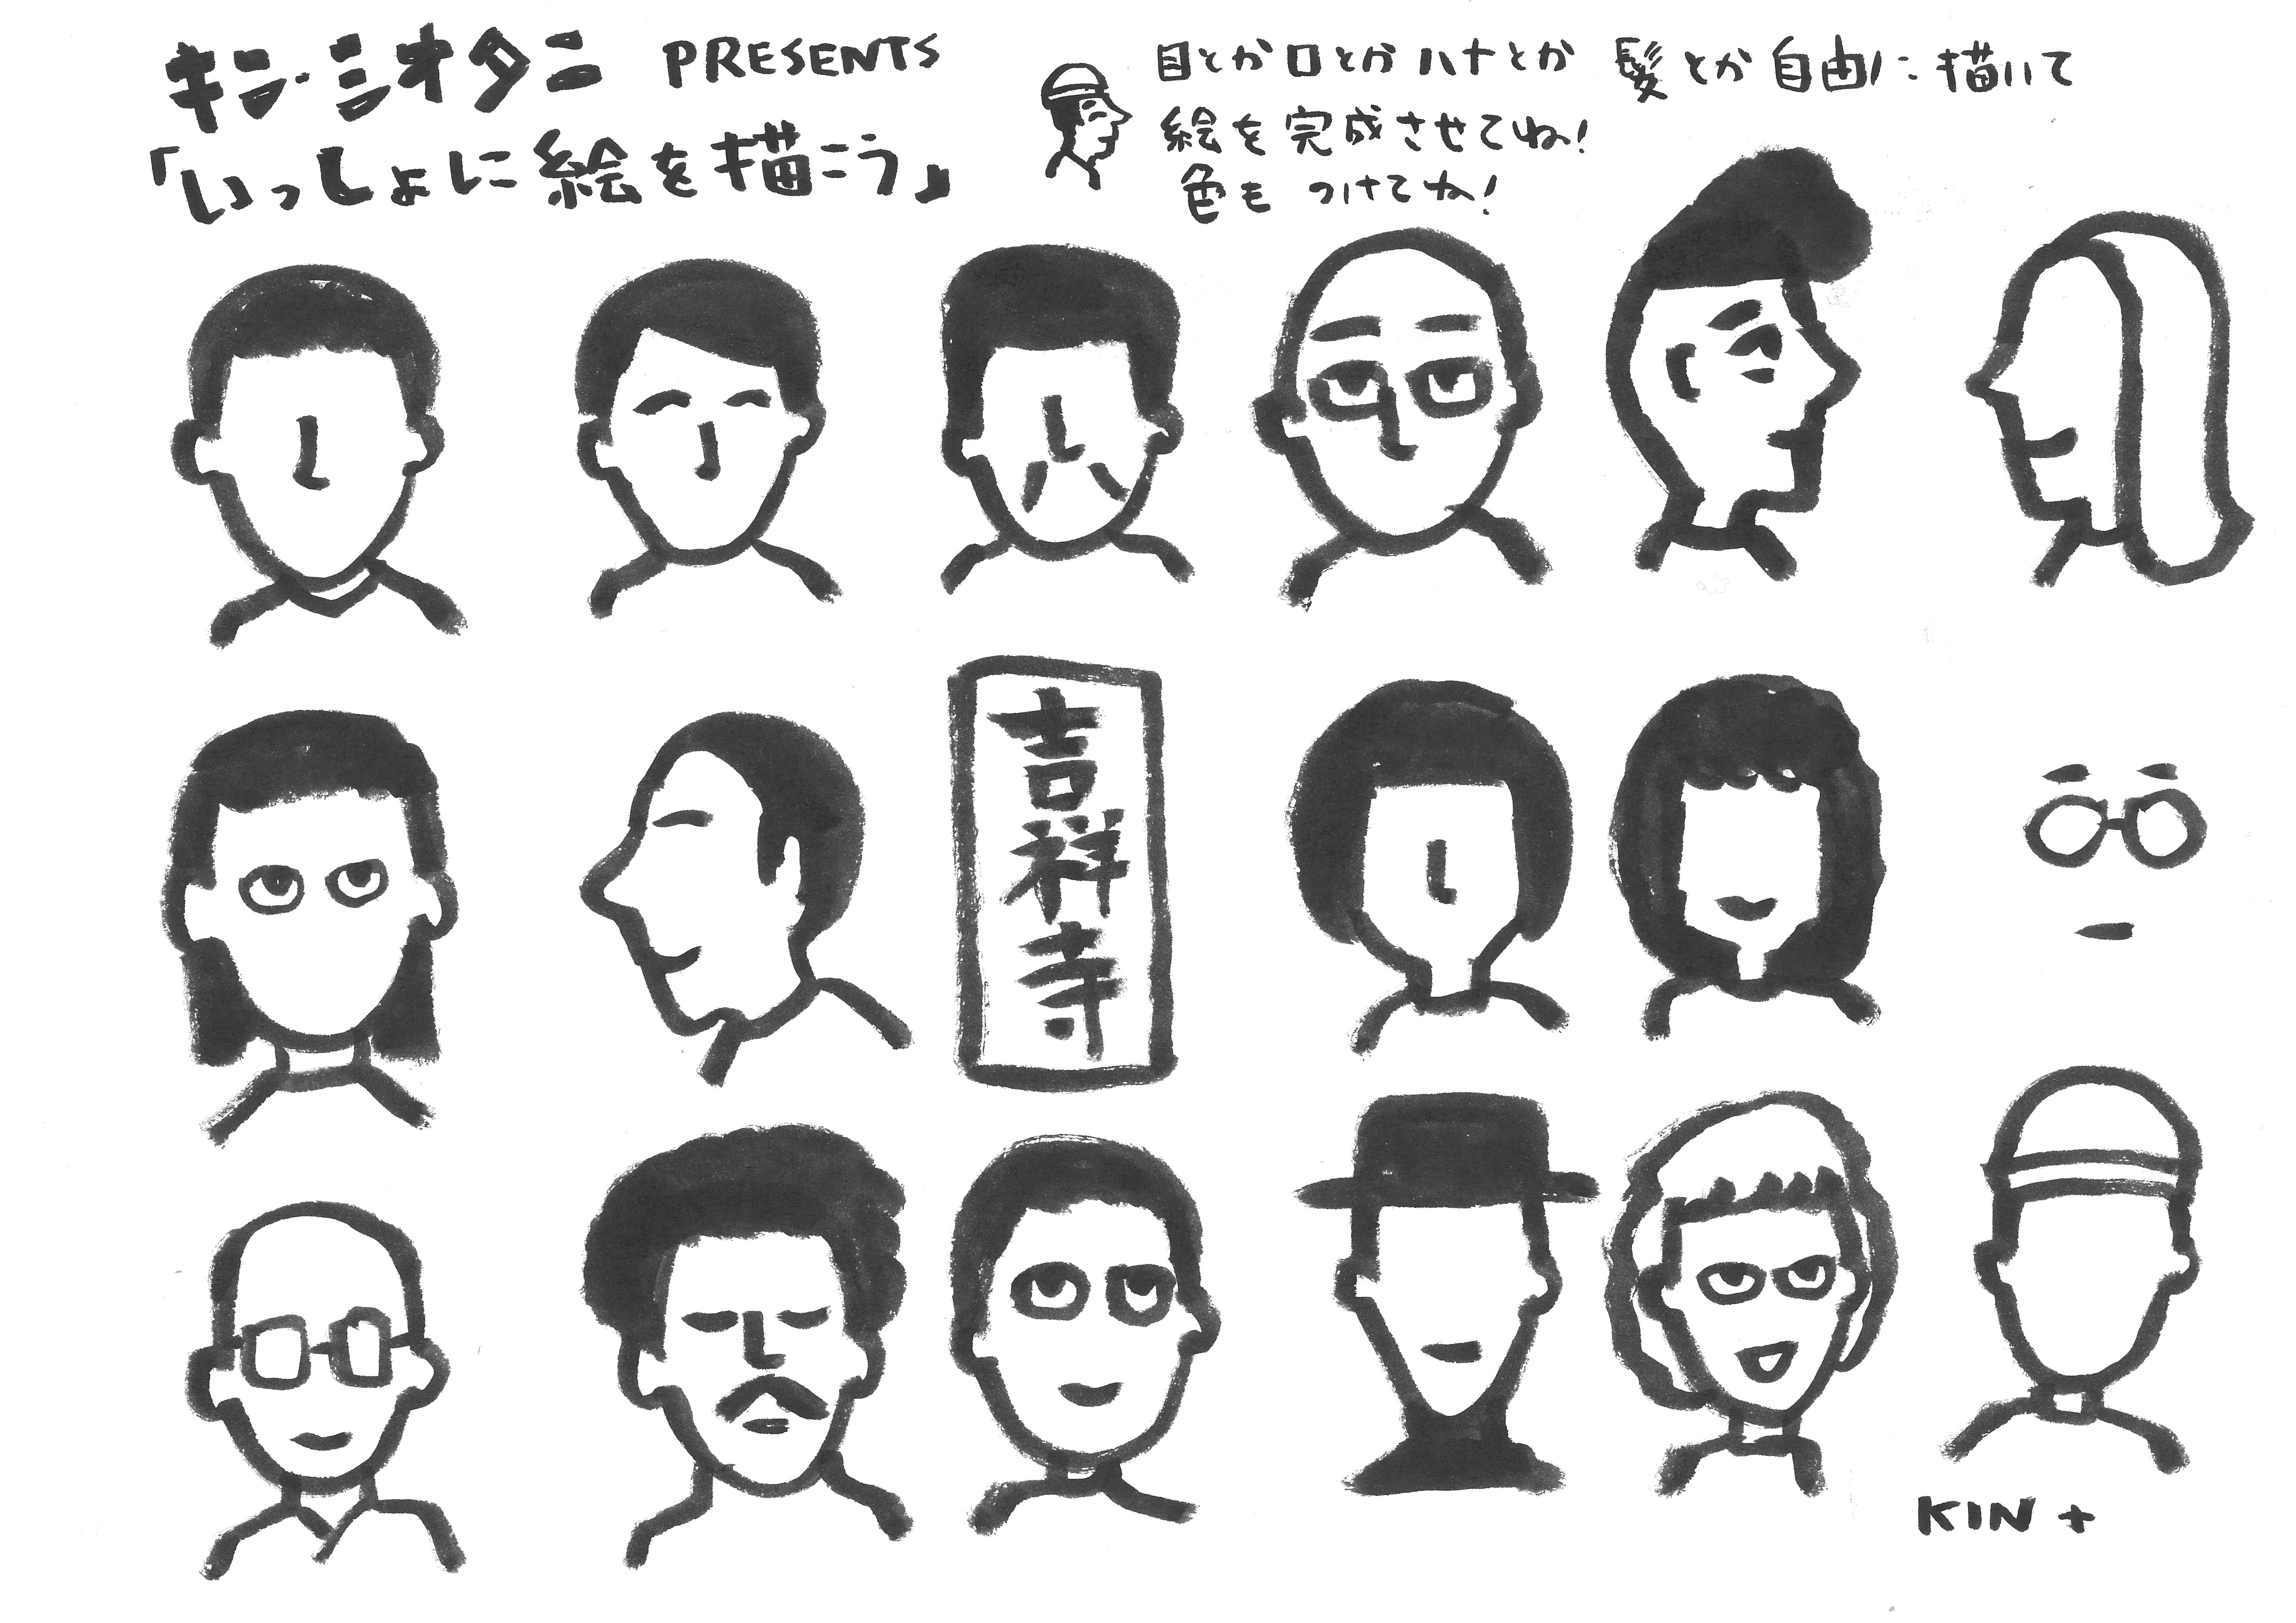 キン・シオタニ PRESENTS
「いっしょに絵を描こう」
目とか口とかハナとか 髪とか自由に描いて
絵を完成させてね!
色もつけてね!
吉祥寺
KIN +